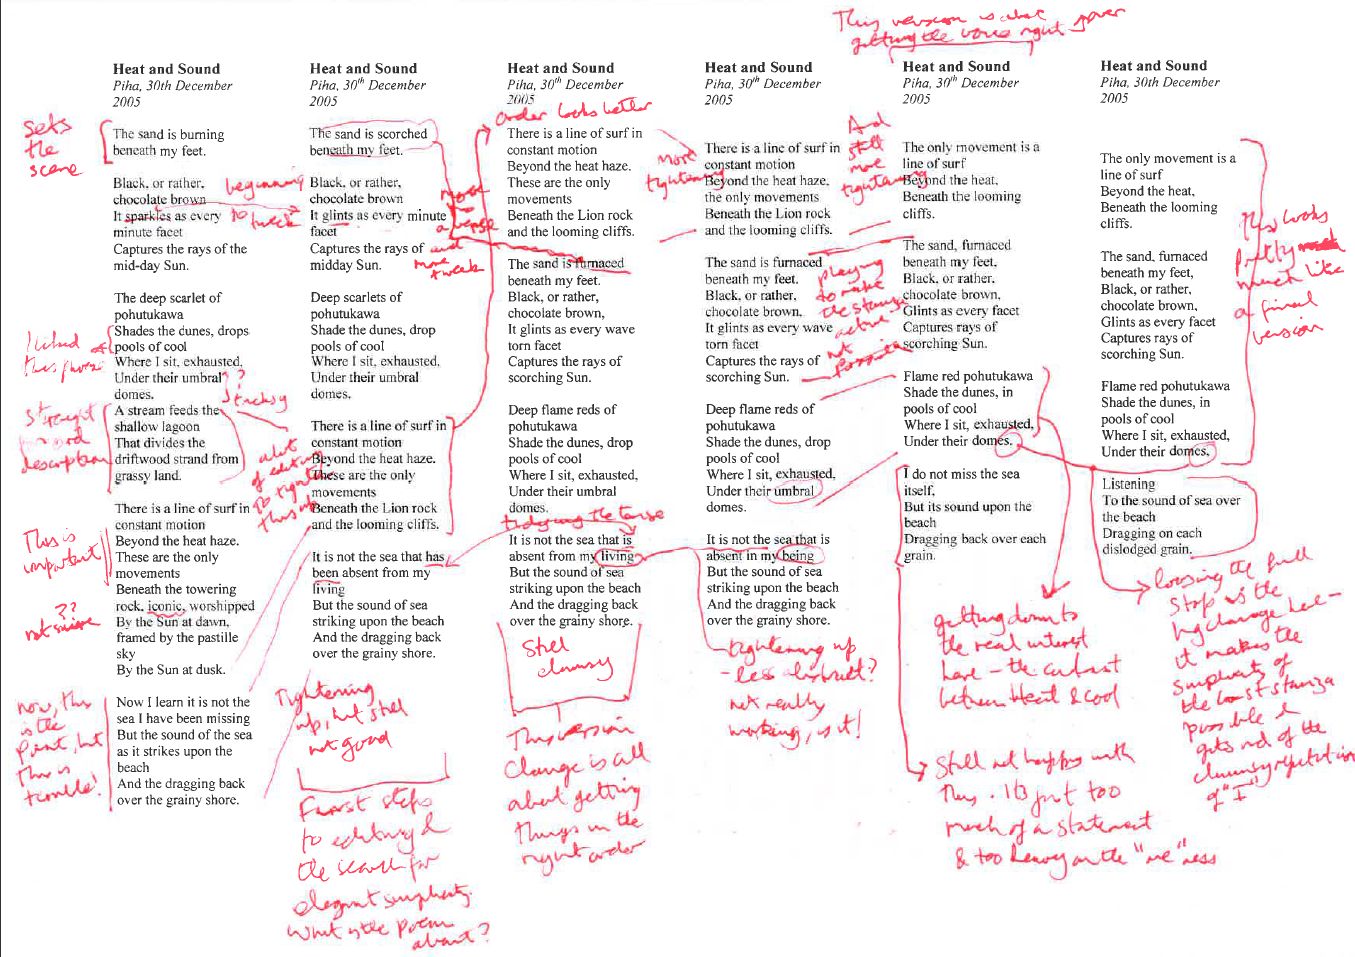 This version is about
getting the voice right
Heat and Sound
Piha, 30th December
2005
sets
the
scene
The sand is burning
beneath my feet.
Black, or rather,
chocolate brown
It sparkles as every
minute facet
Captures the rays of the
mid-day Sun.
beginning
to tweak
The deep scarlet of
pohutukawa
Shades the dunes, drops
pools of cool
Where I sit, exhausted,
Under their umbral
domes.
I liked
this phrase
??
A stream feeds the
shallow lagoon
That divides the
driftwood strand from
grassy land.
straight
forward
description
There is a line of surf in
constant motion
Beyond the heat haze.
These are the only
movements
Beneath the towering
rock, iconic, worshipped
By the Sun at dawn,
framed by the pastille
sky
By the Sun at dusk.
This is
important
??
not sure
Now I learn it is not the
sea I have been missing
But the sound of the sea
as it strikes upon the
beach
And the dragging back
over the grainy shore.
now, this
is the
point, but
this is
terrible!
Heat and Sound
Piha, 30th December
2005
The sand is scorched
beneath my feet.
Black, or rather,
chocolate brown
It glints as every minute
facet
Captures the rays of
midday Sun.
move
a verse
and
more
tweak
Deep scarlets of
pohutukawa
Shade the dunes, drop
pools of cool
Where I sit, exhausted,
Under their umbral
domes.
There is a line of surf in
constant motion
Beyond the heat haze.
These are the only
movements
Beneath the Lion rock
and the looming cliffs.
a lot
of editing
to tighten
this up
It is not the sea that has
been absent from my
living
But the sound of sea
striking upon the beach
And the dragging back
over the grainy shore.
Tightening
up, but still
not good
First steps
to editing &
the search for
elegant simplicity.
What is the poem
about?
Heat and Sound
Piha, 30th December
2005
order looks better
There is a line of surf in
constant motion
Beyond the heat haze.
These are the only
movements
Beneath the Lion rock
and the looming cliffs.
The sand is furnaced
beneath my feet.
Black, or rather,
chocolate brown,
It glints as every wave
torn facet
Captures the rays of
scorching Sun.
Deep flame reds of
pohutukawa
Shade the dunes, drop
pools of cool
Where I sit, exhausted,
Under their umbral
domes.
tidying the tense
It is not the sea that is
absent from my living
But the sound of sea
striking upon the beach
And the dragging back
over the grainy shore.
Still
clumsy
This version
change is all
about getting
things in the
right order
Heat and Sound
Piha, 30th December
2005
more
tightening
There is a line of surf in
constant motion
Beyond the heat haze,
the only movements
Beneath the Lion rock
and the looming cliffs.
The sand is furnaced
beneath my feet.
Black, or rather,
chocolate brown,
It glints as every wave
torn facet
Captures the rays of
scorching Sun.
playing
to make
the stanza
active
not
passive
Deep flame reds of
pohutukawa
Shade the dunes, drop
pools of cool
Where I sit, exhausted,
Under their umbral
domes.
It is not the sea that is
absent in my being
But the sound of sea
striking upon the beach
And the dragging back
over the grainy shore.
tightening up
- less abstract?
not really
working, is it!
Heat and Sound
Piha, 30th December
2005
And
still
more
tightening
The only movement is a
line of surf
Beyond the heat,
Beneath the looming
cliffs.
The sand, furnaced
beneath my feet,
Black, or rather,
chocolate brown,
Glints as every facet
Captures rays of
scorching Sun.
Flame red pohutukawa
Shade the dunes, in
pools of cool
Where I sit, exhausted,
Under their domes.
I do not miss the sea
itself,
But its sound upon the
beach
Dragging back over each
grain.
getting down to
the real interest
here - the contrast
between Heat & cool
Still not happy with
this. It's just too
much of a statement
& too heavy on the "me"ness
Heat and Sound
Piha, 30th December
2005
The only movement is a
line of surf
Beyond the heat,
Beneath the looming
cliffs.
The sand, furnaced
beneath my feet,
Black, or rather,
chocolate brown,
Glints as every facet
Captures rays of
scorching Sun.
Flame red pohutukawa
Shade the dunes, in
pools of cool
Where I sit, exhausted,
Under their domes.
Listening
To the sound of sea over
the beach
Dragging on each
dislodged grain.
This looks
pretty
much like
a final
version
loosing the full
stop is the
big change here -
it makes the
simplicity of
the last stanza
possible &
gets rid of the
clumsy repetition
of "I"